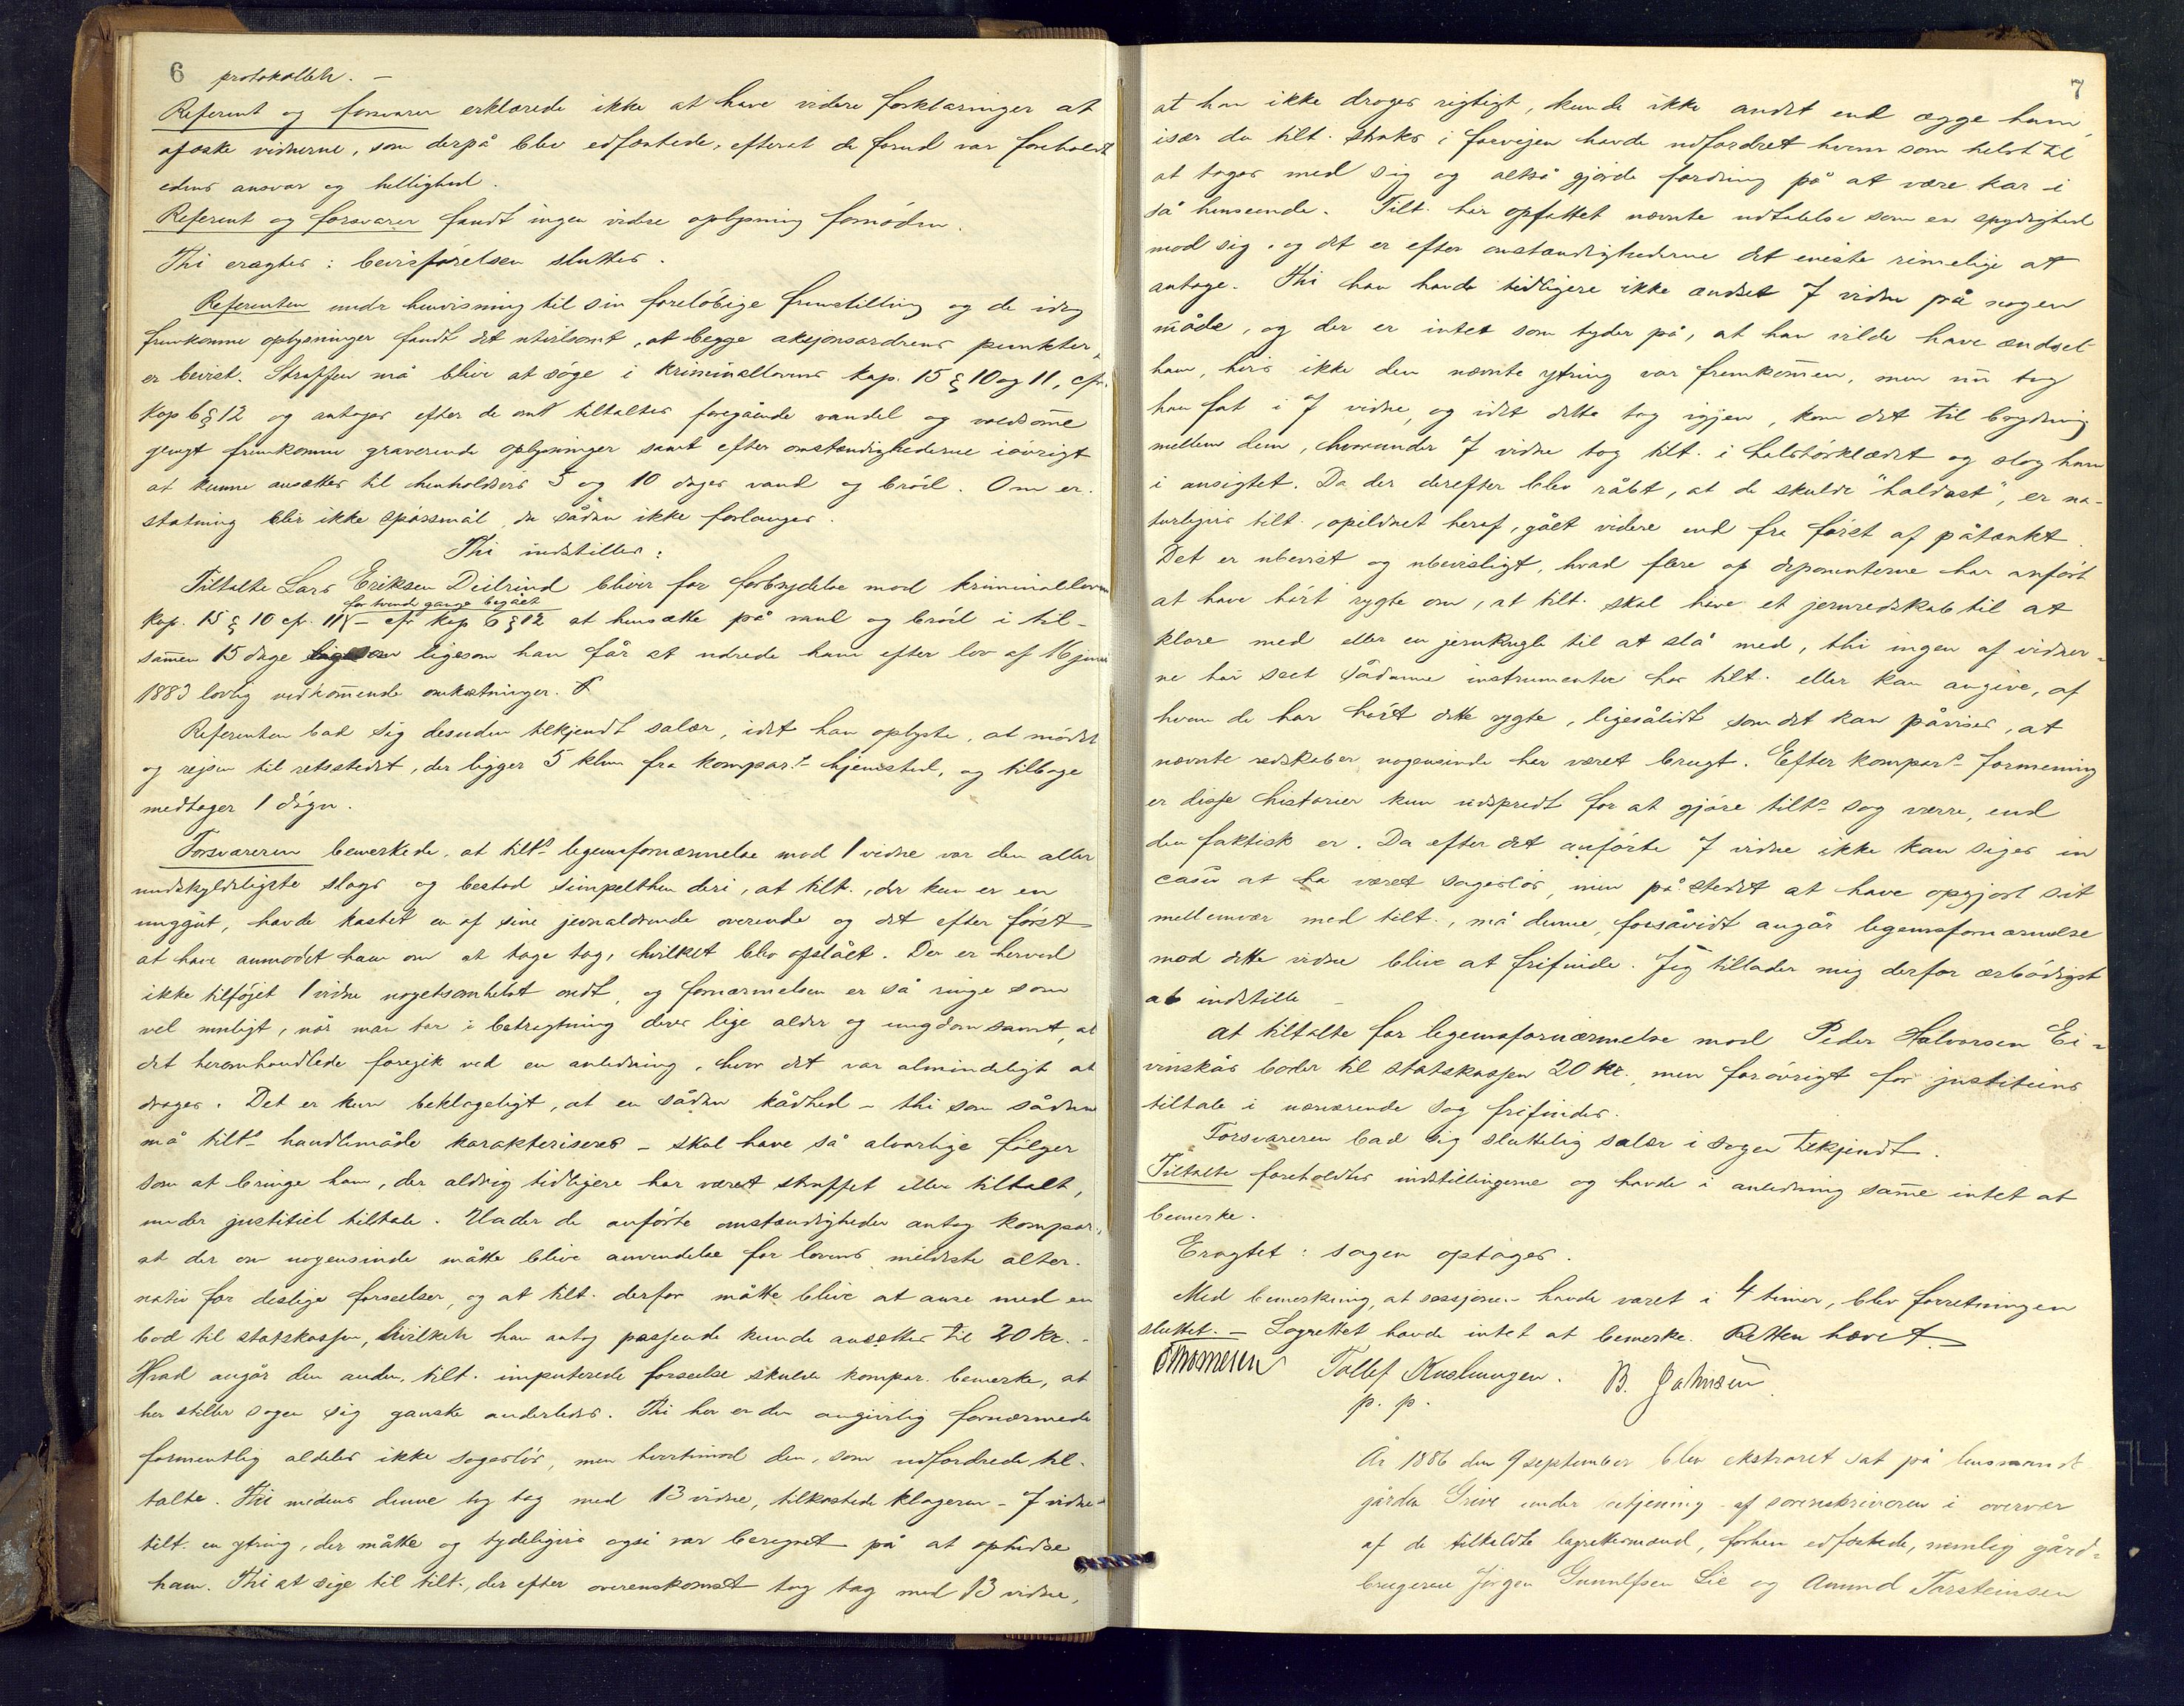 6 protokollen. –
Referent og forsvarer erklærede ikke at have videre forklaringer at
afæske vidnerne, som derpå blev edfæstede, efterat de forud var foreholdt
edens ansvar og hellighed.
Referent og forsvarer fandt ingen vidre oplysning fornøden.
Thi eragtes: bevisførelsen sluttes.
Referenten undr henvisning til sin foreløbige fremstilling og de idag
fremkomne oplysninger fandt det utvilsomt, at begge aksjonsordrens punkter
er bevist. Straffen må blive at søge i kriminallovens kap. 15 § 10 og 11, cfr.
kap 6 § 12 og antages efter de om tiltaltes foregående vandel og voldsomme
gemyt fremkomne graverende oplysninger samt efter omstændighederne iøvrigt
at kunne ansættes til henholdsvis 5 og 10 dages vand og brød. Om er-
statning blir ikke spørsmål, da sådan ikke forlanges.
Thi indstilles:
Tiltalte Lars Eriksen Deilrind bliver for forbrydelse mod kriminalloven
for tvende gange begået
kap. 15 § 10 cfr. 11 – cfr kap 6 § 12 at hensætte på vand og brød i til-
sammen 15 dage ligesom han får at udrede ham efter lov af 16 juni
1883 lovlig vedkommende omkostninger.
Referenten bad sig desuden tilkjendt salær, idet han oplyste, at mødet
og rejsen til retsstedet, der ligger 5 klm fra kompar.s hjemsted, og tilbage
medtager 1 døgn.
Forsvareren bemerkede, at tilts legemsfornærmelse mod 1 vidne var den aller
undskyldeligste slags og bestod simpelthen deri, at tilt., der kun er en
unggut, havde kastet en af sine jevnaldrende overende og det efter først
at have anmodet ham om at tage tag, hvilket blev afslået. Der er herved
ikke tilføjet 1 vidne nogetsomhelst ondt, og fornærmelsen er så ringe som
vel muligt, når man tar i betragtning deres lige alder og ungdom samt, at
det heromhandlede foregik ved en anledning, hvor det var almindeligt at
drages. Det er kun beklageligt, at en sådan kådhed – thi som sådan
må tilts handlemåde karakteriseres – skal have så alvorlige følger
som at bringe ham, der aldrig tidligere har været straffet eller tiltalt,
under justitiel tiltale. Under de anførte omstændigheder antog kompar.,
at der om nogensinde måtte blive anvendelse for lovens mildeste alter-
nativ for deslige forseelser, og at tilt. derfor måtte blive at anse med en
bod til statskassen, hvilken han antog passende kunde ansættes til 20 kr. –
Hvad angår den anden, tilt. imputerede forseelse skulde kompar. bemerke, at
her stiller sagen sig ganske anderledes. Thi her er den angivelig fornærmede
formentlig aldeles ikke sagesløs, men tvertimod den, som udfordrede til-
talte. Thi medens denne tog tag med 13 vidne, tilkastede klageren – 7 vidne –
tilt. en ytring, der måtte og tydeligvis også var beregnet på at ophidse
ham. Thi at sige til tilt., der efter overenskomst tog tag med 13 vidne,
7
at han ikke droges rigtigt, kunde ikke andet end ægge ham,
især da tilt. straks i forvejen havde udfordret hvem som helst til
at tages med sig og altså gjorde fordring på at være kar i
så henseende. Tilt. har opfattet nævnte udtalelse som en spydighed
mod sig, og det er efter omstændighederne det eneste rimelige at
antage. Thi han havde tidligere ikke ændset 7 vidne på nogen
måde, og der er intet som tyder på, at han vilde have ændset
ham, hvis ikke den nævnte ytring var fremkommen, men nu tog
han fat i 7 vidne, og idet dette tog igjen, kom det til brydning
mellem dem, hvorunder 7 vidne tog tilt. i halstørklædet og slog ham
i ansigtet. Da der derefter blev råbt, at de skulde "haldast", er na-
turligvis tilt., opildnet heraf, gået videre end fra først af påtænkt.
Det er ubevist og ubevisligt, hvad flere af deponenterne har anført
at have hørt rygte om, at tilt. skal have et jernredskab til at
klore med eller en jernkugle til at slå med, thi ingen af vidner-
ne har seet sådanne instrumenter hos tilt. eller kan angive, af
hvem de har hørt dette rygte, ligesålidt som det kan påvises, at
nævnte redskaber nogensinde har været brugt. Efter kompars formening
er disse historier kun udspredt for at gjøre tilts sag værre, end
den faktisk er. Da efter det anførte 7 vidne ikke kan siges in
casu at ha været sagesløs, men på stedet at have opgjort sit
mellemvær med tilt., må denne, forsåvidt angår legemsfornærmelse
mod dette vidne blive at frifinde. Jeg tillader mig derfor ærbødigst
at indstille –
at tiltalte for legemsfornærmelse mod Peder Halvorsen Ei-
vinskås bøder til statskassen 20 kr., men forøvrigt for justitiens
tiltale i nærværende sag frifindes.
Forsvareren bad sig sluttelig salær i sagen tilkjendt.
Tiltalte foreholdtes indstillingerne og havde i anledning samme intet at
bemerke.
Eragtet: sagen optages.
Med bemerkning, at sessjonen havde varet i 4 timer, blev forretningen
sluttet. – Lagrettet havde intet at bemerke. Retten hævet.
Tallef
B. Jahnsen
p. p.
År 1886 den 9 september blev ekstraret sat på lensmands
gården Grive under betjening af sorenskriveren i overvær
af de tilkaldte lagrettesmænd, forhen edfæstede, nemlig gård-
brugerne Jørgen Gunulfsen Lie og Amund Torsteinsen